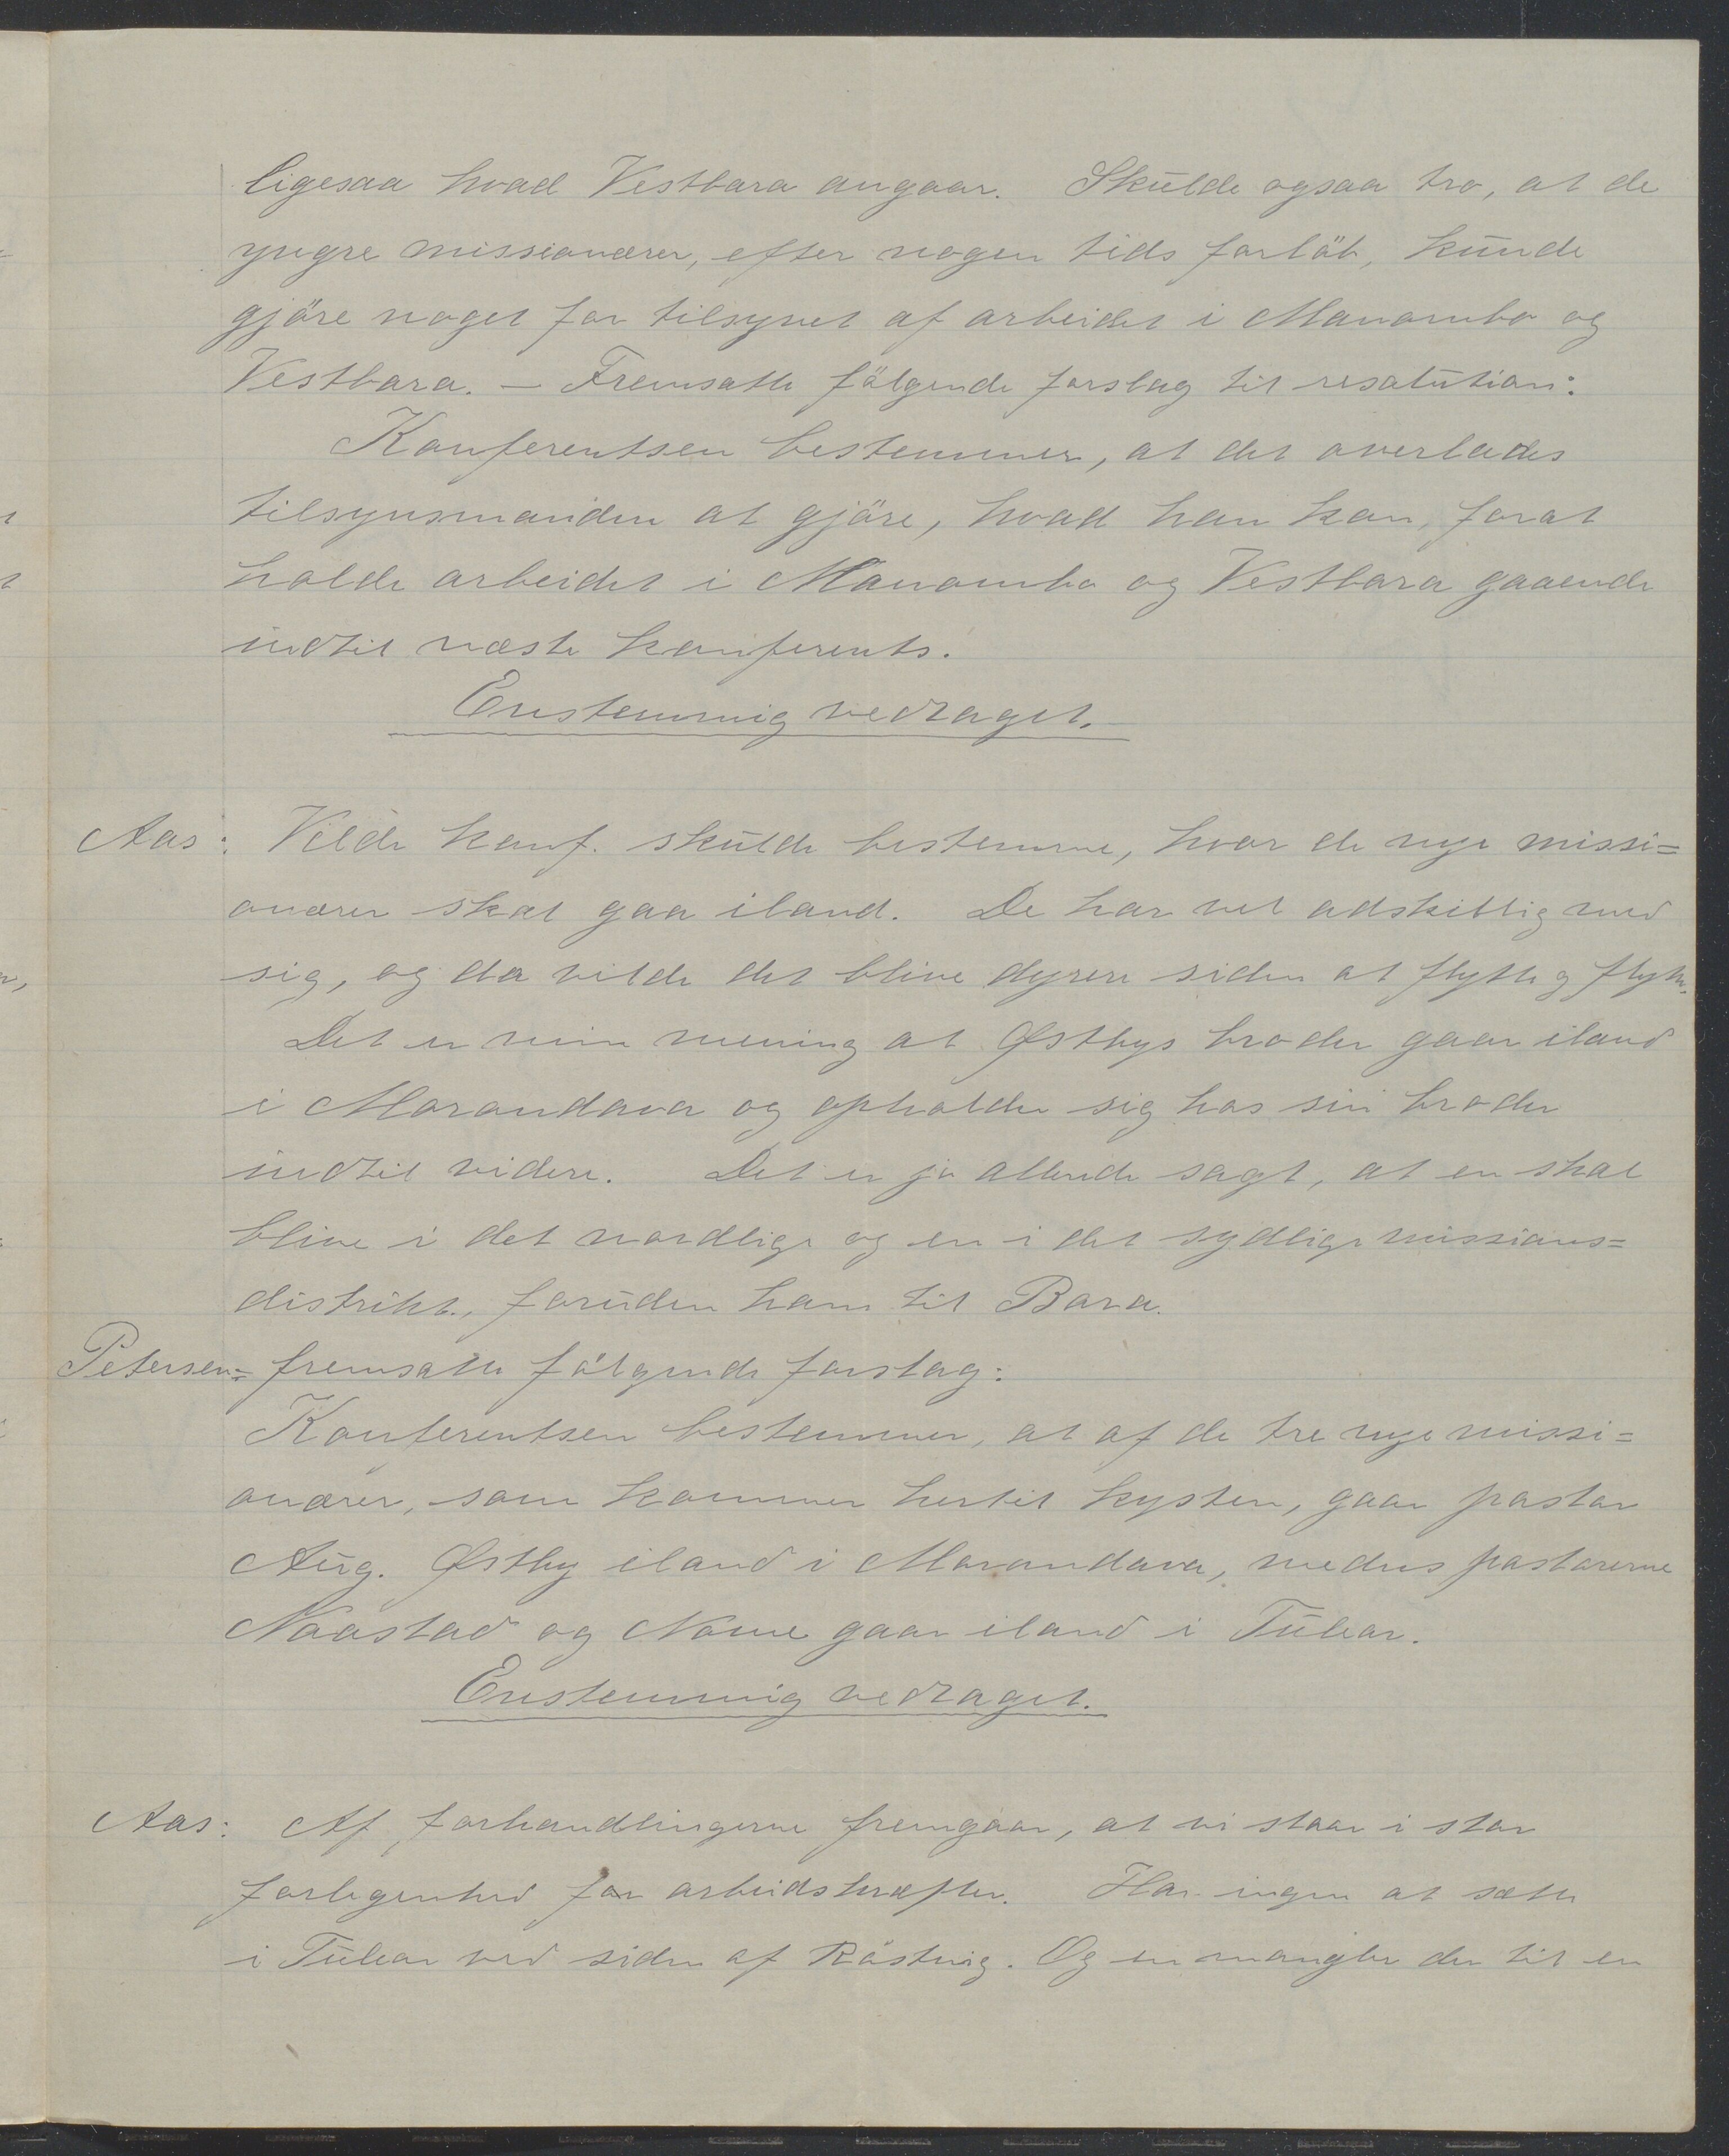 ligesaa hvad Vestbara angaar. Skulde ogsaa tro, at de
yngre missionærer, efter nogen tids forløb, kunde
gjöre noget for tilsynet af arbeidet i Manombo og
Vestbara. — Fremsatte fölgende forslag til resolution:
Konferentsen bestemmer, at det overlades
tilsynsmanden at gjöre, hvad han kan, forat
holde arbeidet i Manombo og Vestbara gaaende
indtil næste konferents.
Enstemmig vedtaget.
Aas: Vilde konf. skulde bestemme, hvor de nye missi=
onærer skal gaa iland. De har vel adskillig med
sig, og da vilde det blive dyrere siden at flytte og flytte.
Det er min mening at Østbys broder gaar iland
i Morondava og opholder sig hos sin broder
indtil videre. Det er jo allerede sagt, at en skal
blive i det nordlige og en i det sydlige missions=
distrikt, foruden ham til Bara.
Petersen: fremsatte fölgende forslag:
Konferentsen bestemmer, at af de tre nye missi=
onærer, som kommer hertil kysten, gaar pastor
Aug. Østby iland i Morondava, medens pastorerne
Naastad og Nome gaar iland i Tulear.
Enstemmig vedtaget.
Aas: Af forhandlingerne fremgaar, at vi staar i stor
forlegenhed for arbeidskræfter. Har ingen at sætte
i Tulear ved siden af Röstvig. Og en mangler der til en